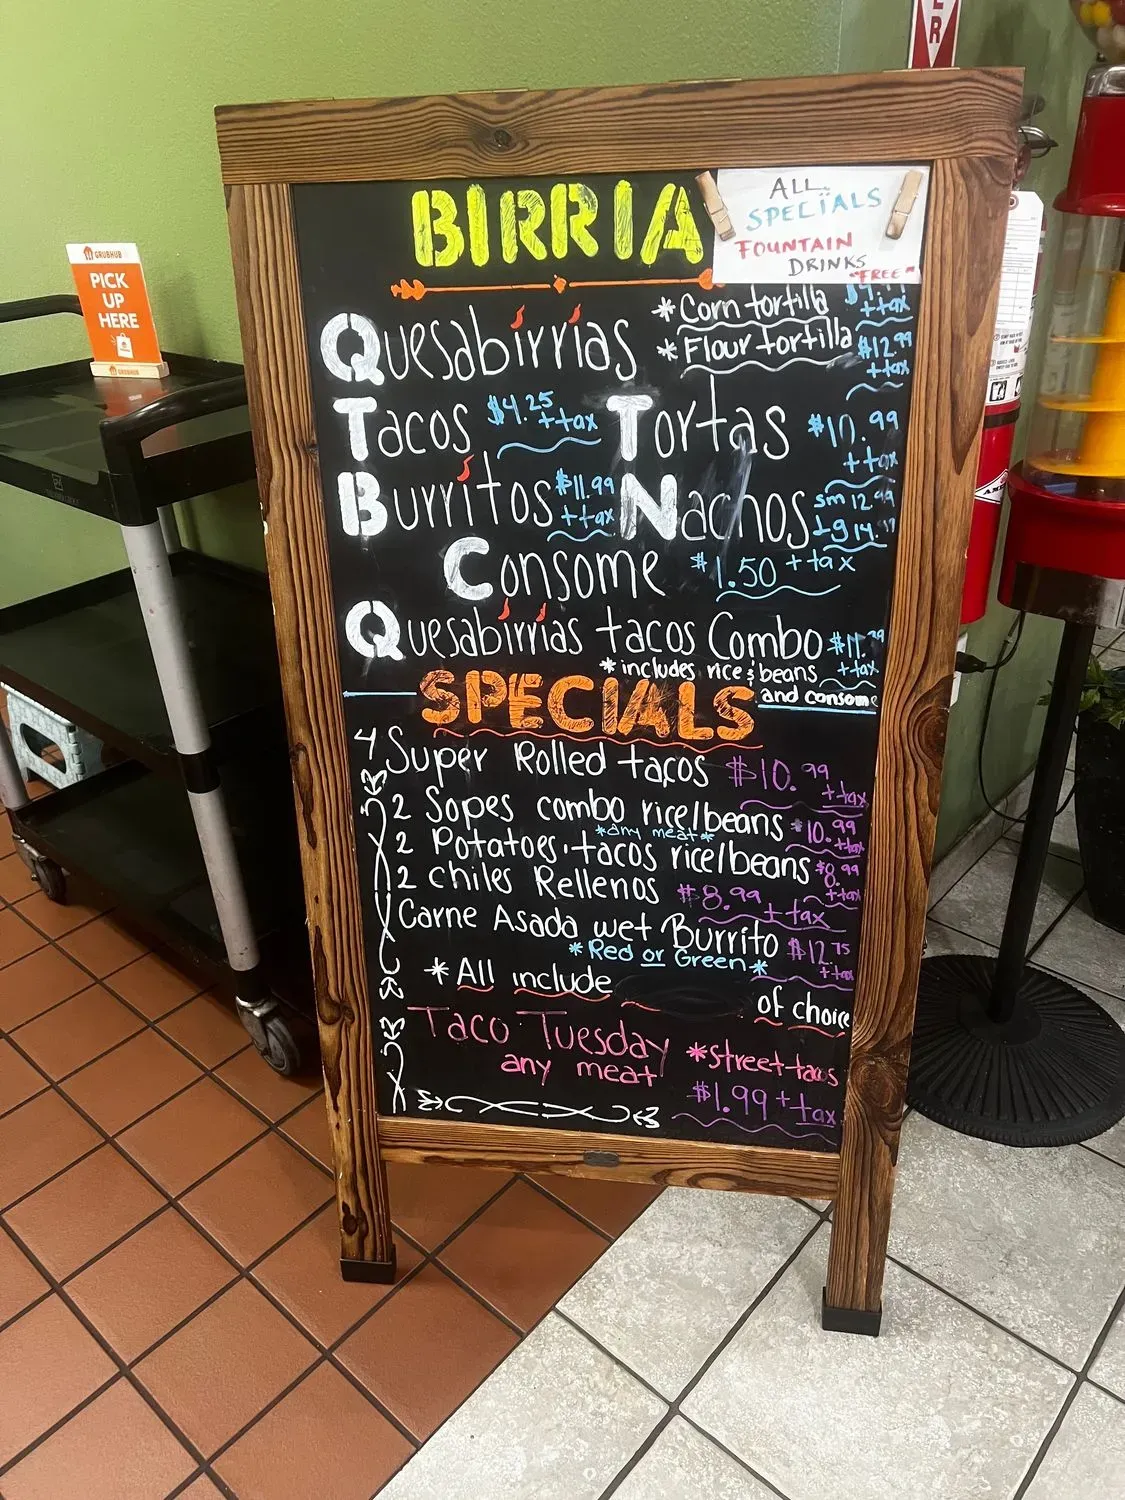 ER
GRUBHUB
PICK
UP
HERE
GRUBHUB
BIRRIA
ALL
SPECIALS
FOUNTAIN
DRINKS
"FREE"
Quesabirrias
*Corn tortilla ++tax
*Flour tortilla $12.99
++tax
Tacos $4.25 ++tax
Tortas $10.99
++tax
Burritos $11.99
++tax
Nachos sm 12.99
Lg 14.
Consome $1.50 ++tax
Quesabirrias tacos Combo $11.
++tax
*includes rice & beans
and consome
SPECIALS
4 Super Rolled tacos $10.99
++tax
2 Sopes combo rice/beans $10.99
++tax
*any meat*
2 Potatoes tacos rice/beans $8.99
++tax
2 chiles Rellenos $8.99 ++tax
Carne Asada wet Burrito $12.75
++tax
*Red or Green*
*All include of choice
Taco Tuesday
any meat
*street tacos
$1.99 ++tax